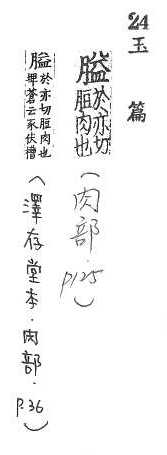 24
玉篇
膉於亦切
脰肉也
(肉部.P125)
膉於亦切脰肉也
埤蒼云豕伏槽
(澤存堂本.肉部.P.36)